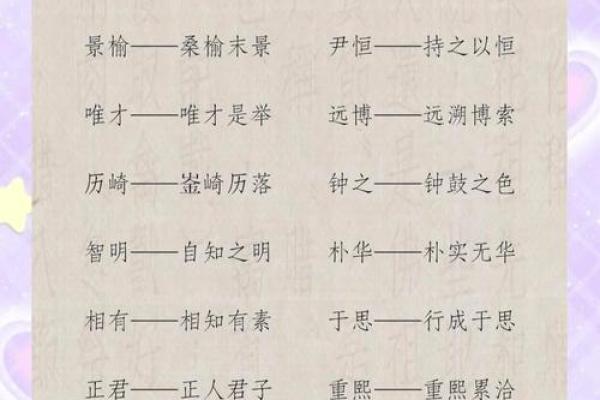 景榆——桑榆末景 尹恒——持之以恒
唯才——唯才是举 远博——远溯博索
历崎——崟崎历落 钟之——钟鼓之色
智明——自知之明 朴华——朴实无华
相有——相知有素 于思——行成于思
正君——正人君子 重熙——重熙累洽